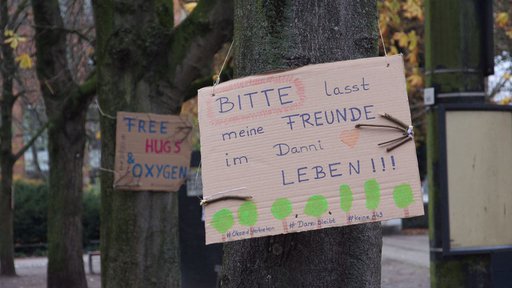 BITTE lasst
meine FREUNDE
im Danni
LEBEN!!!
#Danni bleibt
FREE
HUGS
& OXYGEN